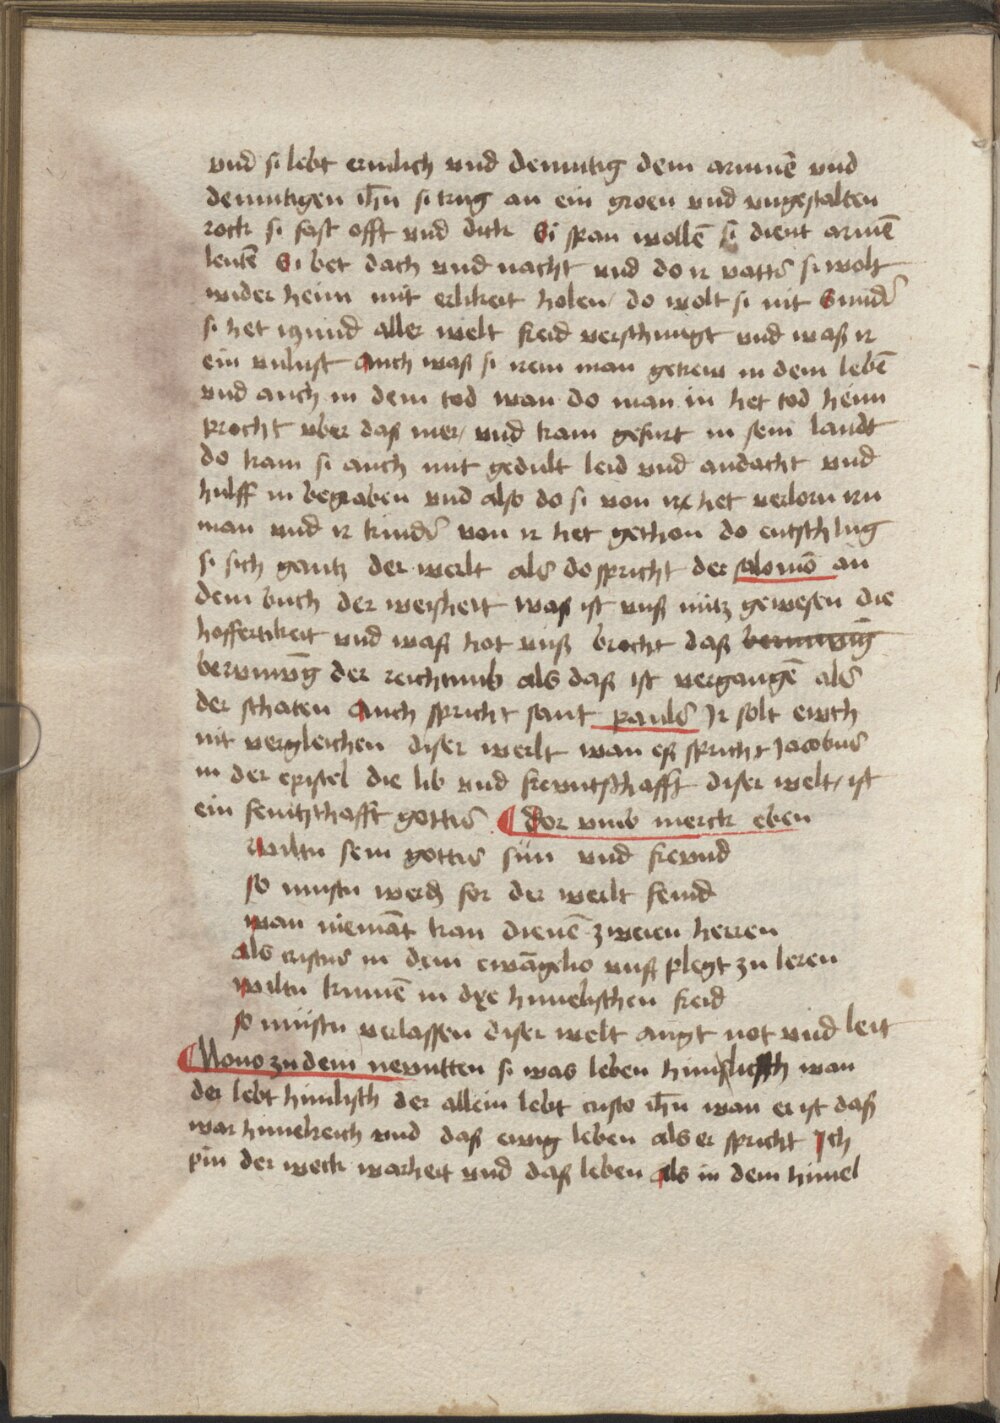 vnd si lebt ermlich vnd demutig dem armmē vnd
demutigen ih̄u si trug an ein groen vnd vngestalten
rock si fast offt vnd dick Si span wollē si dient armē
leutē Si bet dach vnd nacht vnd do ir vatter si wolt
wider heim mit erlikeit holen / do wolt si nit Sunder
si het iczund aller welt freid verschmigt vnd waß ir
ein vnlust Auch waß si irem man getrew in dem lebē
vnd auch in dem tod wan do man in het tod heim
procht vber daß mer / vnd kam gefurt in sein landt
do kam si auch mit gedult leid vnd andacht vnd
hulff in begraben vnd also do si von ir het verlorn irn
man vnd ir kinder von ir het gethon do entschlug
si sich gantz der werlt als do spricht der salomō an
dem buch der weisheit Waß ist vnß nütz gewesen die
hoffertikeit vnd waß hot vnß brocht daß
berumūg der reichtumb als daß ist vergangē als
der schaten Auch spricht sant pauls Ir solt ewch
nit vergleichen diser werlt wan eß spricht Jacobus
in der epistel die lib vnd frewntschafft diser welt / ist
ein feintschafft gottis Dor vmb merck eben
Wiltu sein gottis sün vnd frewnd
so mustu werdē for der werlt feind
wan niemāt kan dienē zweien herren
Als cristus in dem ewāgelio vnß plegt zu leren
Wiltu kumē in dye himelischen freid
so müstu verlassen diser welt angt not vnd leit
Nono zu dem newntten si was leben himlisch wan
der lebt himlisch der allein lebt cristo ih̄u wan er ist daß
war himelreich vnd daß ewig leben als er spricht Ich
pin der weck warheit vnd daß leben Als in dem himel